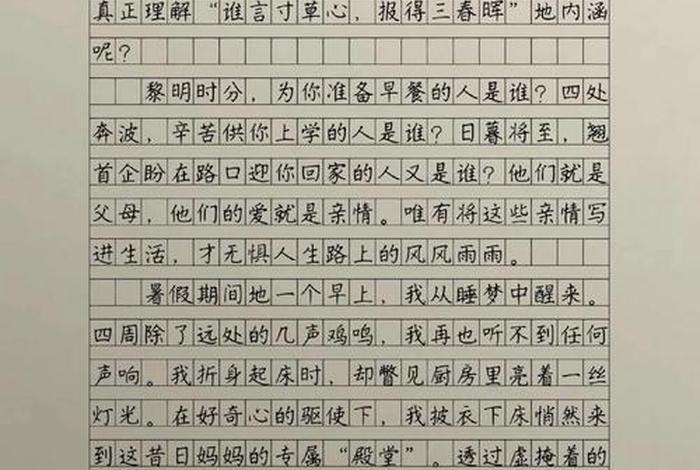 真正理解“谁言寸草心，报得三春晖”地内涵
呢？
黎明时分，为你准备早餐的人是谁？四处
奔波，辛苦供你上学的人是谁？日暮将至，翘
首企盼在路口迎你回家的人又是谁？他们就是
父母，他们的爱就是亲情。唯有将这些亲情写
进生活，才无惧人生路上的风风雨雨。
暑假期间地一个早上，我从睡梦中醒来。
四周除了远处的几声鸡鸣，我再也听不到任何
声响。我折身起床时，却瞥见厨房里亮着一丝
灯光。在好奇心的驱使下，我披衣下床悄然来
到这昔日妈妈的专属“殿堂”。透过虚掩着的